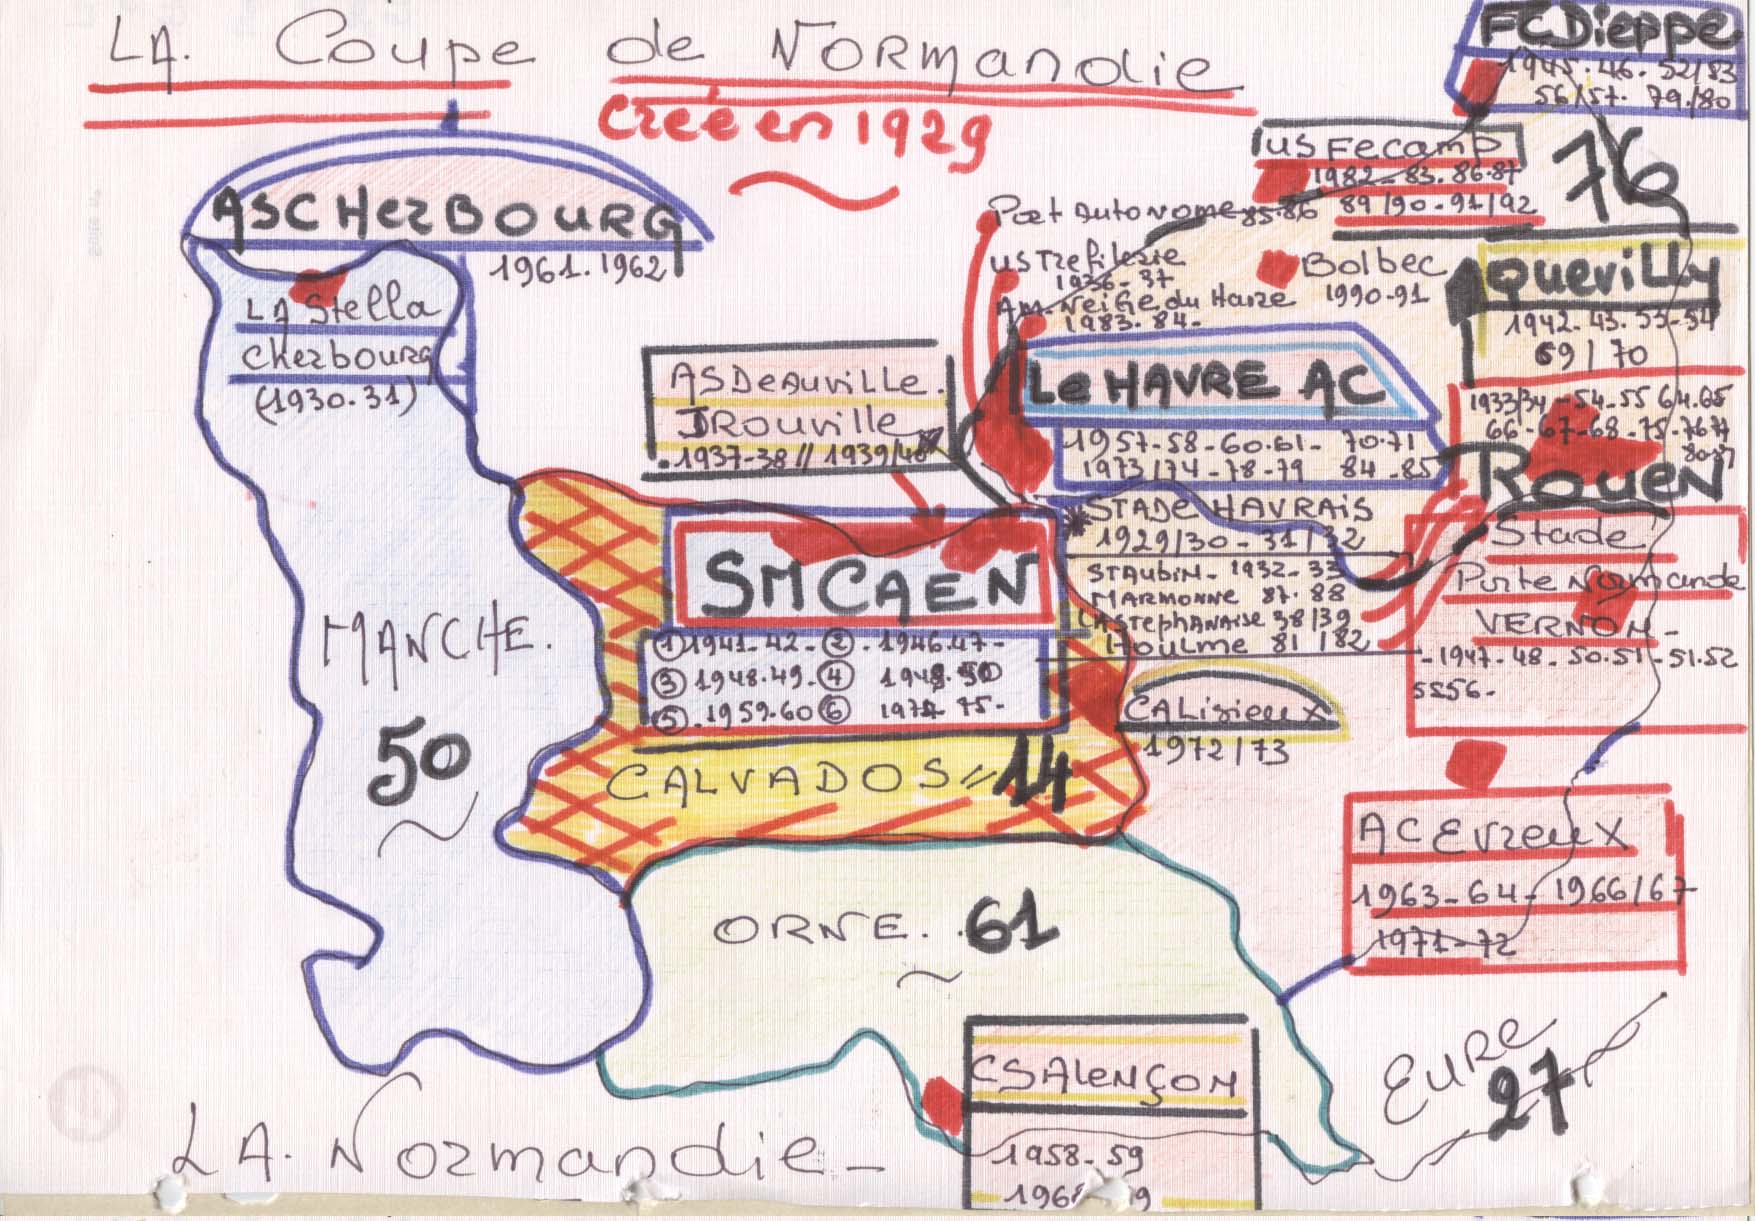 LA. Coupe de Normandie
créé en 1929
FC Dieppe
1945.46.52/53
56/57. 79/80
US Fecamp
1982-83.86.87
89/90-91/92
76
AS CHerBOURG
1961.1962
Port Autonome 85.86
US Trefilerie
1936-37
AM. Neige du Havre
1983.84-
Bolbec
1990-91
QueviLLy
1942-43.53-54
69/70
LA Stella
Cherbourg
(1930.31)
AS DeAUVILLe.
TROUVille
.1937-38//1939/40
Le HAVRE AC
1957-58-60.61-70.71
1973/74-78-79 84-85
1933/34-54.55 64.65
66-67-68-75-76 77
80.81
ROUEN
STADE HAVRAIS
1929/30-31/32
STAUBIN-1932-33
MARMONNE 87.88
LA STEPHANAISE 38/39
HOULME 81/82
Stade
Porte Normande
VERNON-
-1947-48-50.51-51.52
5556-
SMCAEN
① 1941-42-② . 1946.47-
③ 1948.49-④ 1949.50
⑤.1959.60 ⑥ 1974 75-
MANCHE.
50
CALisieux
1972/73
CALVADOS // 14
AC Evreux
1963-64-1966/67
1971-72
ORNE. 61
EURE
27
CSALENÇON
1958-59
LA. Normandie-